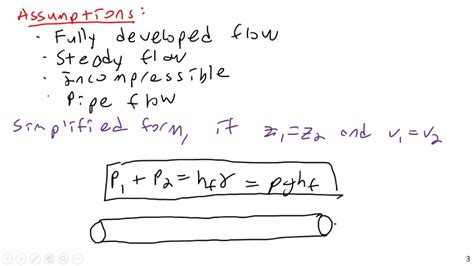 Assumptions:
· Fully developed flow
· Steady flow
· Incompressible
· Pipe flow
Simplified form, if z₁=z₂ and v₁=v₂
P₁ + P₂ = h_fγ = ρgh_f
3